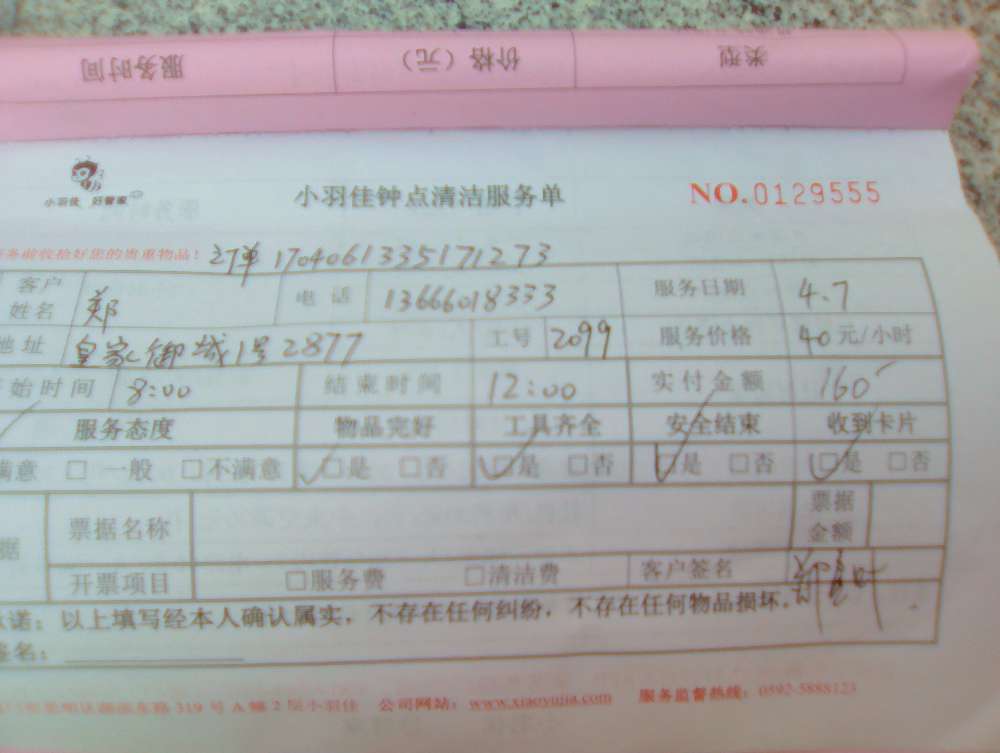 服务时间 价格（元） 类型
小羽佳 好管家 小羽佳钟点清洁服务单 NO.0129555
务前收拾好您的贵重物品！ 订单 1704061335171273
客户姓名 郑 电话 13666018333 服务日期 4.7
地址 皇家御城1号2877 工号 2099 服务价格 40元/小时
始时间 8:00 结束时间 12:00 实付金额 160
服务态度 物品完好 工具齐全 安全结束 收到卡片
满意 □ 一般 □不满意 □是 □否 □是 □否 □是 □否 □是 □否
据 票据名称 票据金额
开票项目 □服务费 □清洁费 客户签名 郑
诺：以上填写经本人确认属实，不存在任何纠纷，不存在任何物品损坏。
签名：
319号A幢2层小羽佳 公司网站：www.xiaoyujia.com 服务监督热线：0592-5888123